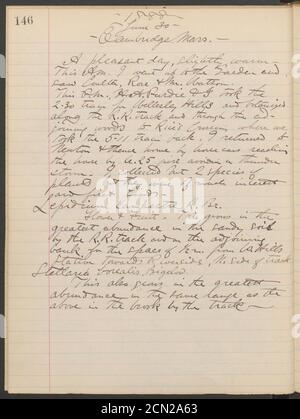 146
June 30
Cambridge Mass.
A pleasant day, slightly warm.
This A.m. I went up to the Garden and
saw Coulter, Rose & Mr. Watson.
This P.m. Hoth, Purdie & I took the
2.30 train for Wellesley Hills and botanized
along the R.R. track and through the ad-
joining woods to Green, where we
took the 5.11 train back. I returned to
Newton & thence home by horse cars reaching
the house by 6.25 just ahead a thunder
storm. I collected but 2 species of
plants
Lepidium R. Br.
Flower & Fruit. This grows in the
greatest abundance in the sandy soil
by the R.R. track and on the adjoining
bank for the space of km. from W. Hills
Station towards Riverside, N. side of track
Stellaria borealis, Bigelow.
This also grows in the greatest
abundance in the same range as the
above in the brook by the track
alamy
2CN2A63